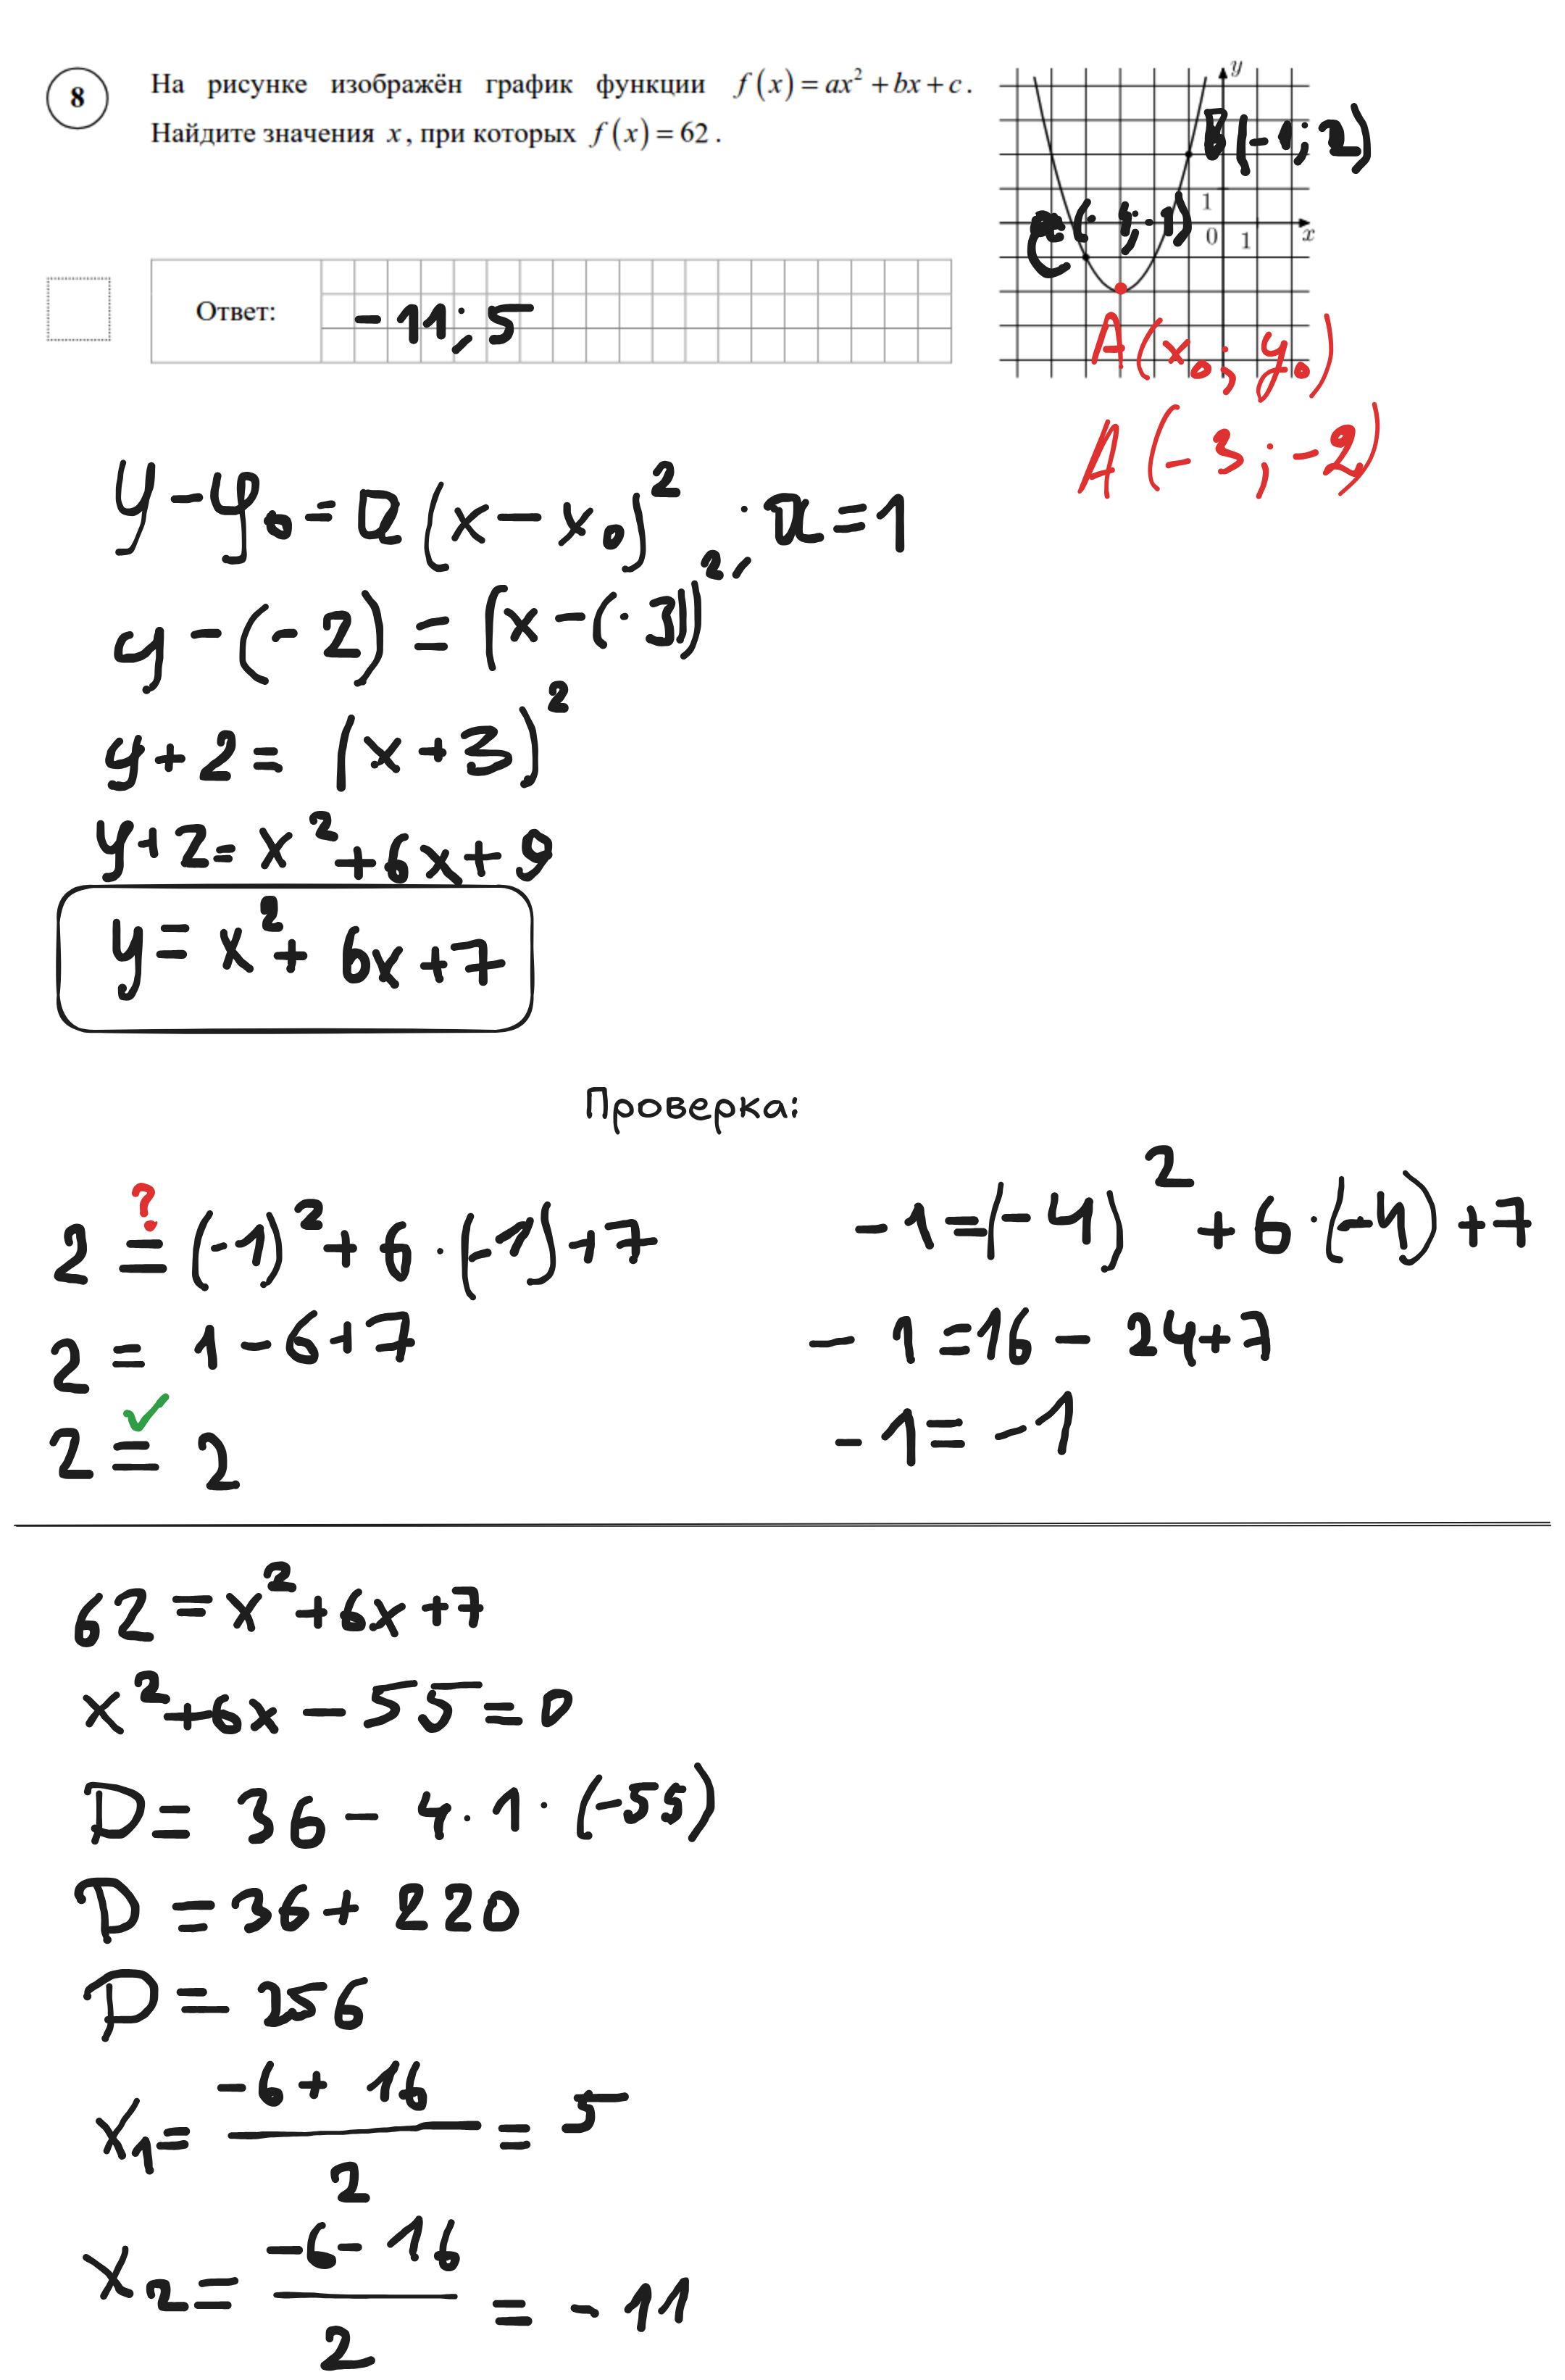 8
На рисунке изображён график функции f(x) = ax² + bx + c.
Найдите значения x, при которых f(x) = 62.
y
B(-1; 2)
1
0 1 x
Ответ: -11; 5
A(x₀; y₀)
A(-3; -2)
y - y₀ = a(x - x₀)²; a = 1
y - (-2) = (x - (-3))²
y + 2 = (x + 3)²
y + 2 = x² + 6x + 9
y = x² + 6x + 7
Проверка:
?
2 = (-1)² + 6 · (-1) + 7
2 = 1 - 6 + 7
2 = 2
-1 = (-4)² + 6 · (-4) + 7
-1 = 16 - 24 + 7
-1 = -1
62 = x² + 6x + 7
x² + 6x - 55 = 0
D = 36 - 4 · 1 · (-55)
D = 36 + 220
D = 256
x₁ = (-6 + 16)/2 = 5
x₂ = (-6 - 16)/2 = -11